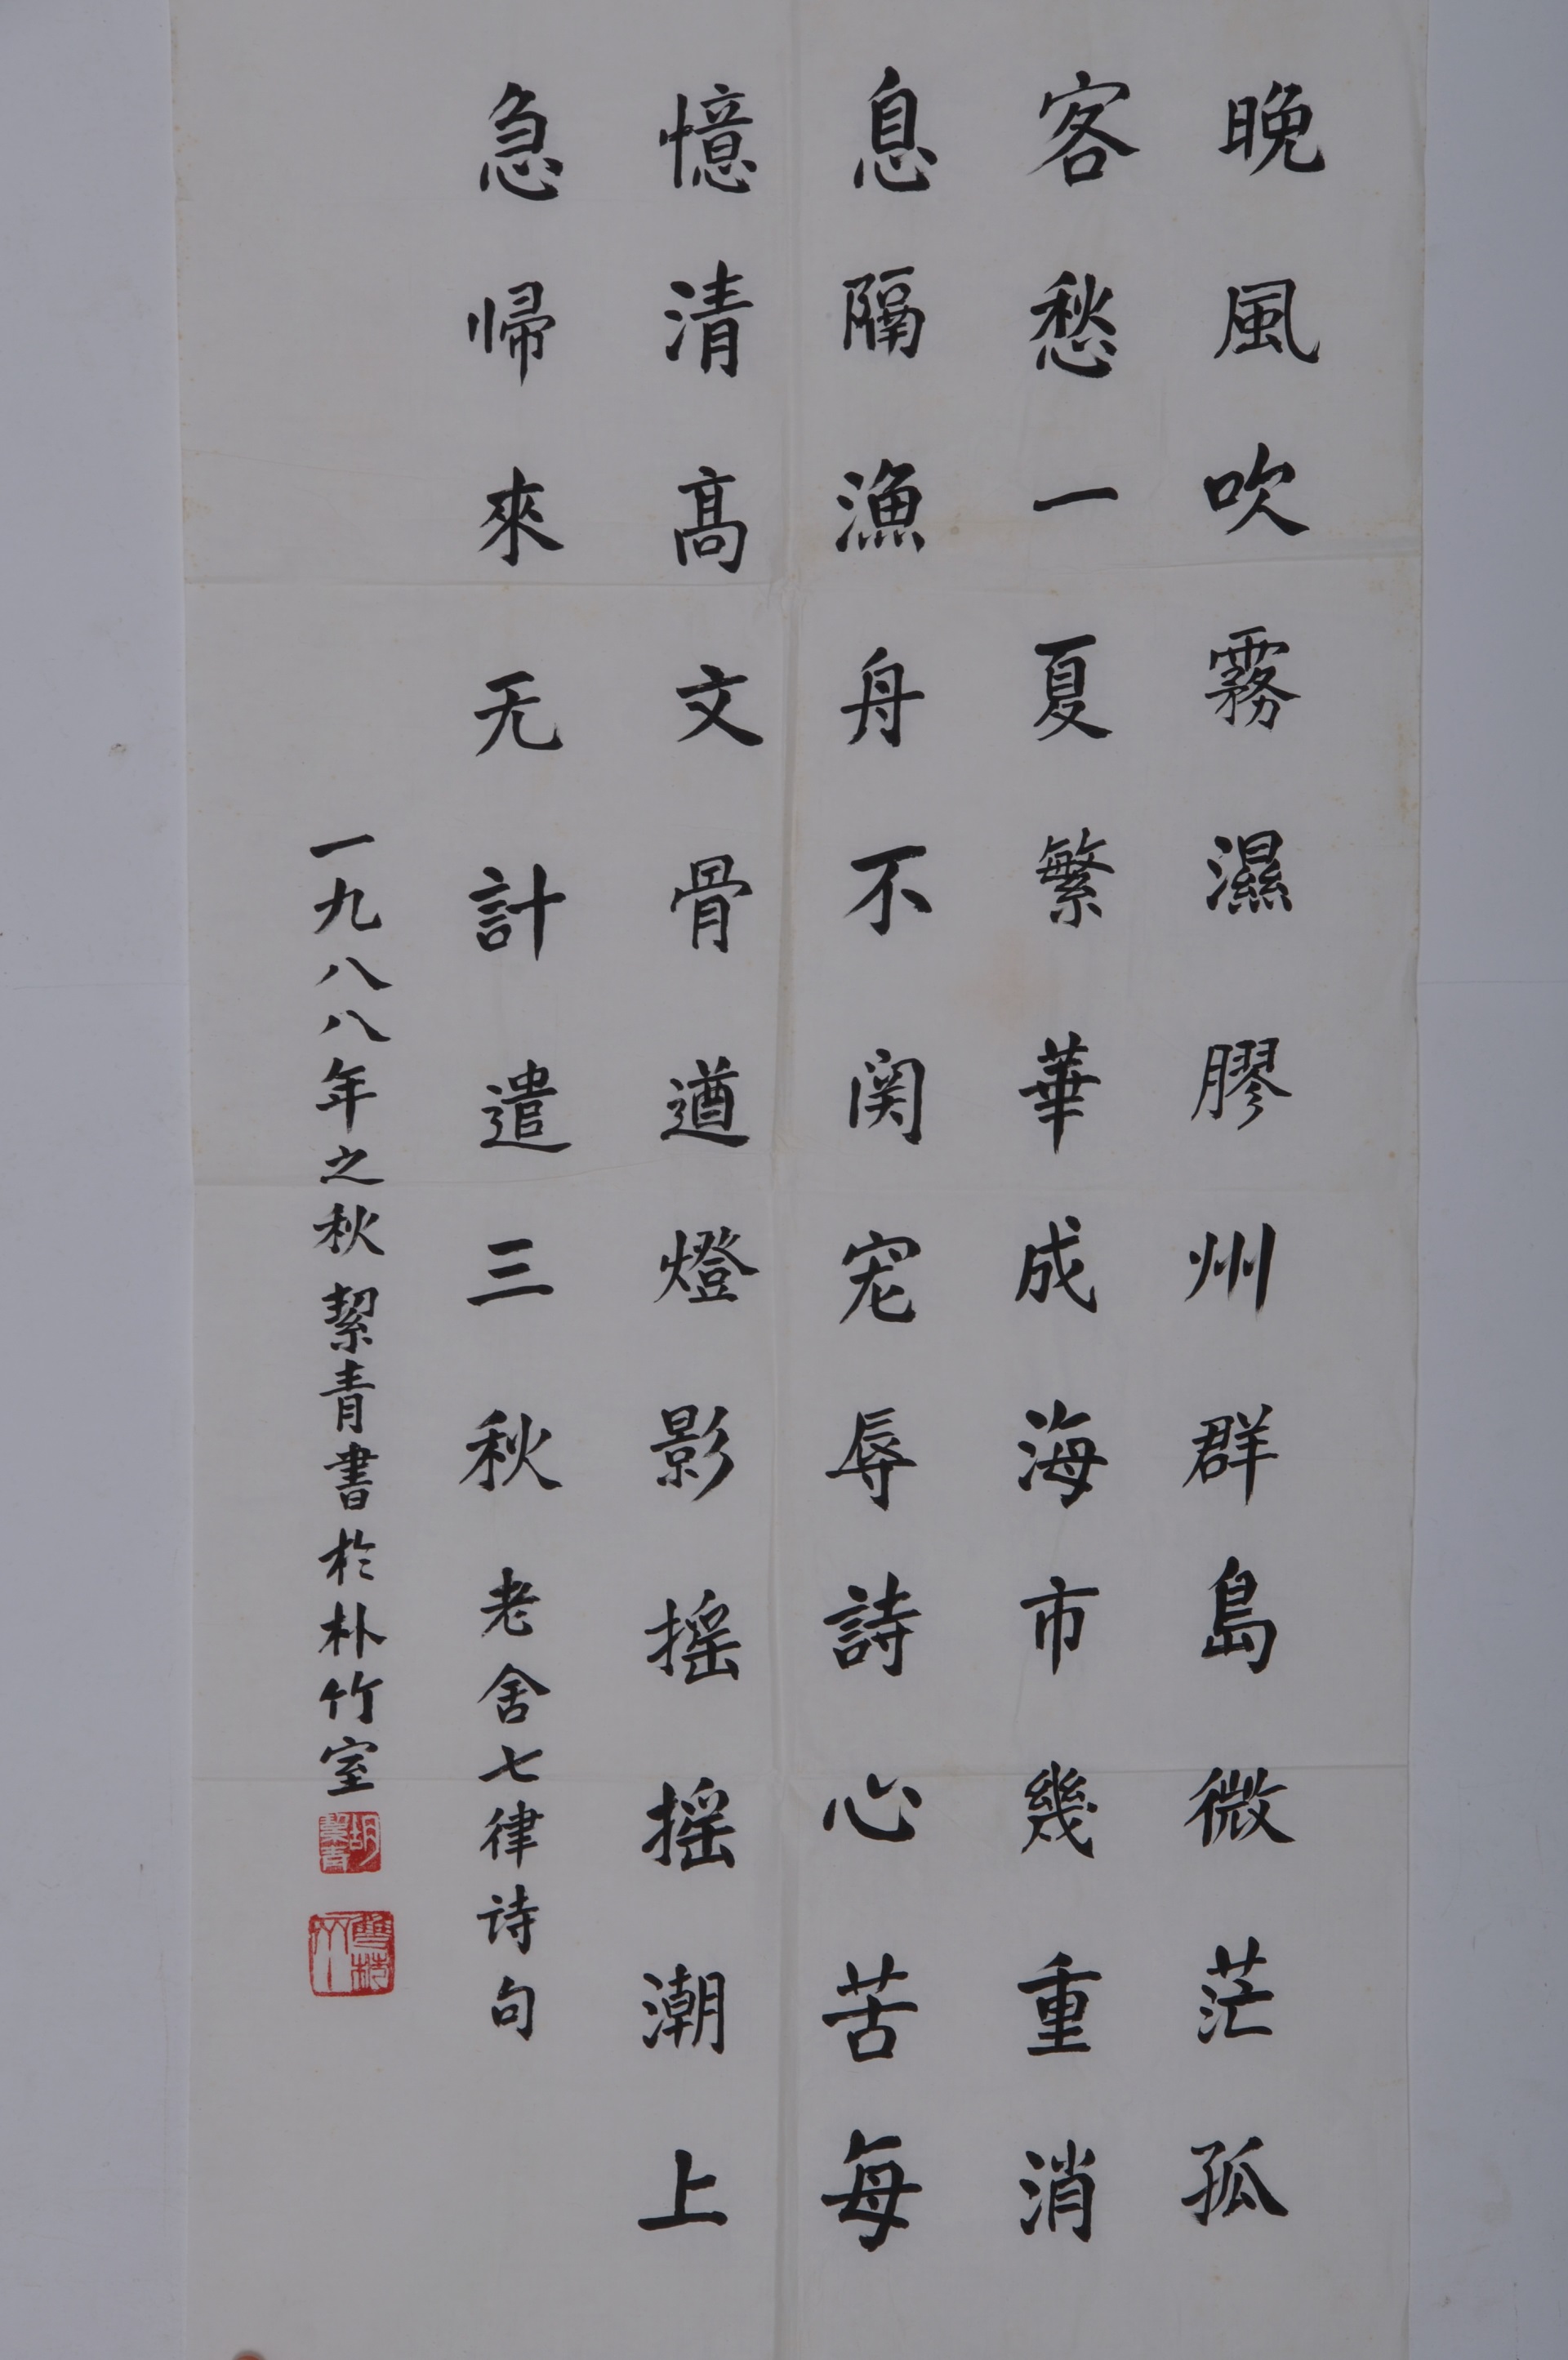 晚風吹霧濕膠州群島微茫孤
客愁一夏繁華成海市幾重消
息隔漁舟不関宠辱詩心苦每
憶清高文骨遒燈影摇摇潮上
急歸來无計遣三秋 老舍七律诗句
一九八八年之秋絜青書於朴竹室
胡絜青